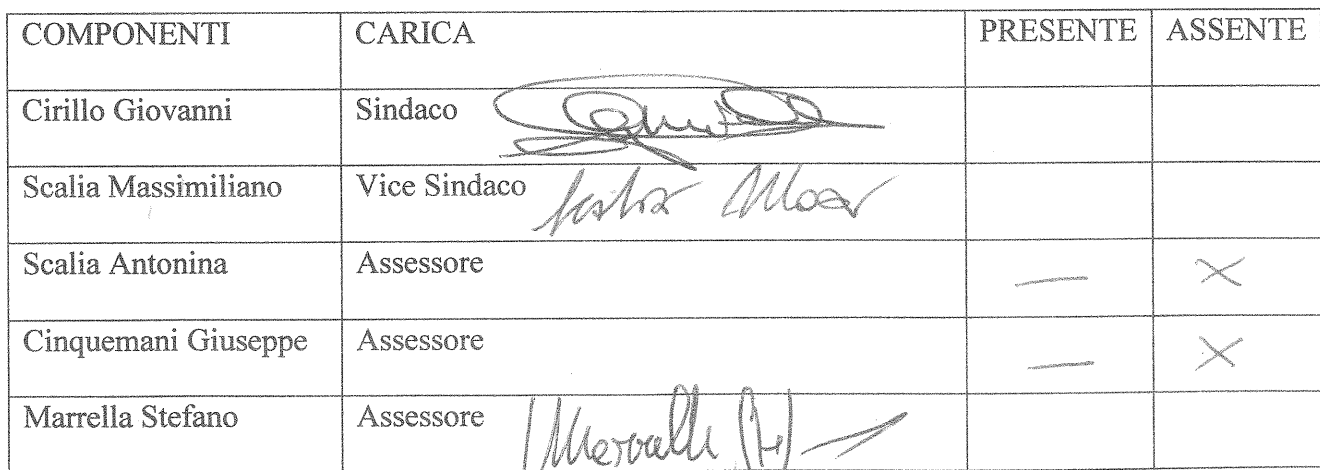 COMPONENTI CARICA PRESENTE ASSENTE
Cirillo Giovanni Sindaco
Scalia Massimiliano Vice Sindaco
Scalia Antonina Assessore — X
Cinquemani Giuseppe Assessore — X
Marrella Stefano Assessore